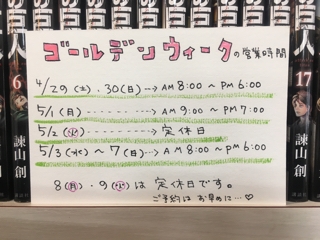 の巨人
の巨人
ゴールデンウィークの営業時間
4/29(土).30(日)---→AM 8:00 ～ PM 6:00
5/1(月)---------→AM 9:00 ～ PM 7:00
5/2(火)----------→定休日
5/3(水)～7(日)---→AM 8:00 ～ PM 6:00
8(月)・9(火)は定休日です。
ご予約はお早めに…♡
6
諫山創
17
諫山創
講談社